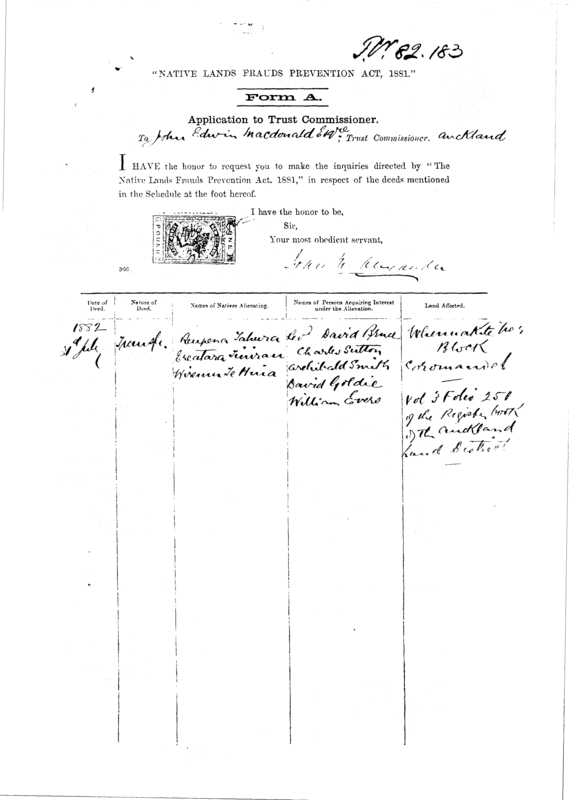 82.183
"NATIVE LANDS FRAUDS PREVENTION ACT, 1881."
FORM A.
Application to Trust Commissioner.
To John Edwin Macdonald Esqre, Trust Commissioner. Auckland
I HAVE the honor to request you to make the inquiries directed by "The
Native Lands Frauds Prevention Act, 1881," in respect of the deeds mentioned
in the Schedule at the foot hereof.
I have the honor to be,
Sir,
Your most obedient servant,
Alexander
Date of Deed.
Nature of Deed.
Names of Natives Alienating.
Names of Persons Acquiring Interest under the Alienation.
Land Affected.
1882
July
Transfr.
Tahura
Hiria
Revd David Bruce
Charles Sutton
Archibald Smith
David Goldie
William Evers
Whenuakite No
Block
Coromandel
Vol 3 Folio 251
of the Register book
of the Auckland
Land District